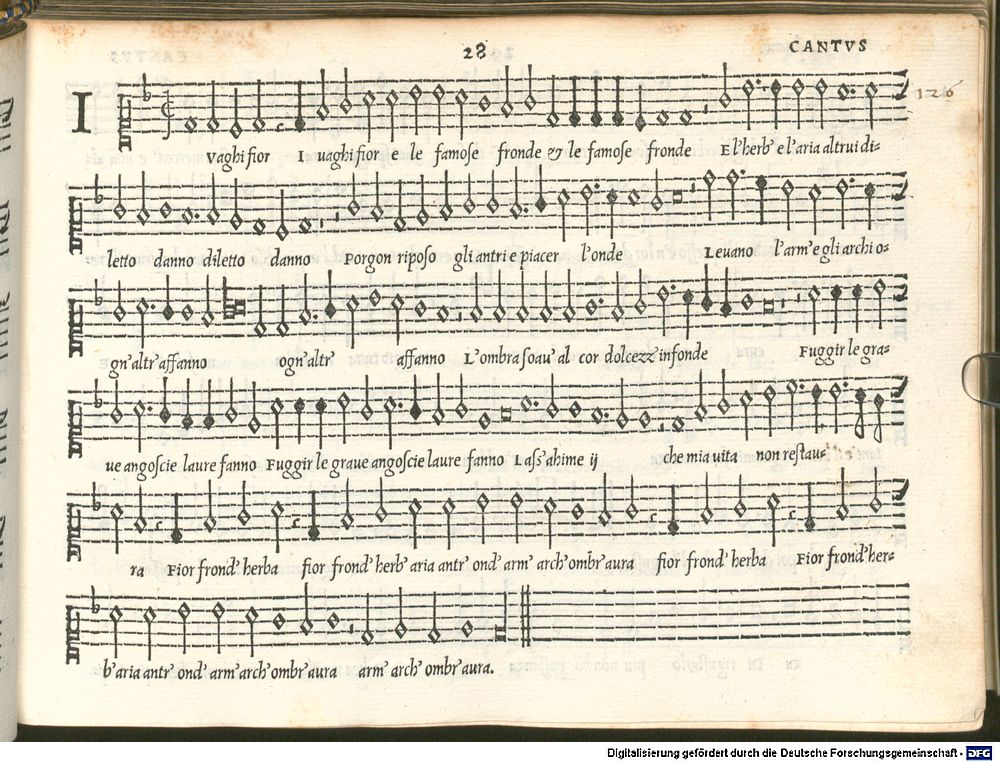 28
CANTVS
126
I
Vaghi fior I uaghi fior e le famose fronde & le famose fronde E l'herb' e l'aria altrui di=
letto danno diletto danno Porgon riposo gli antri e piacer l'onde Leuano l'arm' e gli archi o=
gn' altr' affanno ogn' altr' affanno L'ombra soau' al cor dolcezz' infonde Fuggir le gra=
ue angoscie laure fanno Fuggir le graue angoscie laure fanno Lass' ahime ij che mia uita non restau=
ra Fior frond' herba fior frond' herb' aria antr' ond' arm' arch' ombr' aura fior frond' herba Fior frond' her=
b' aria antr' ond' arm' arch' ombr' aura arm' arch' ombr' aura.
Digitalisierung gefördert durch die Deutsche Forschungsgemeinschaft - DFG